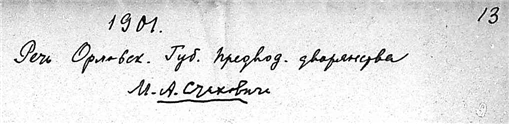 13
1901.
Речь Орловск. Губ. предвод. дворянства
М. А. Стаховича